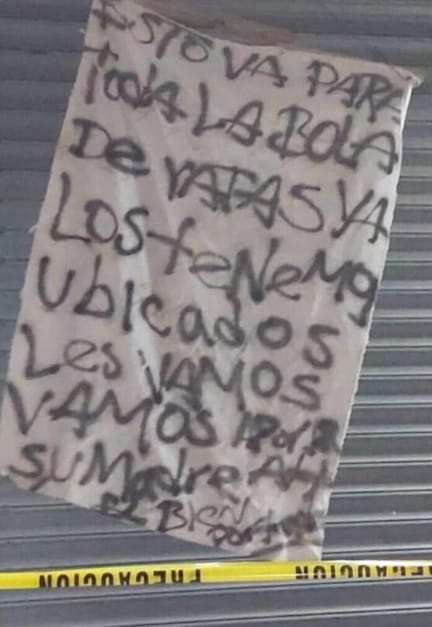 ESTO VA PARA
toda LA BOLA
De RATAS YA
LOS teNeMO
UbIcados
Les VAMOS
VAMOS
SU Madre
EL BIEN
PRECAUCION
PRECAUCION